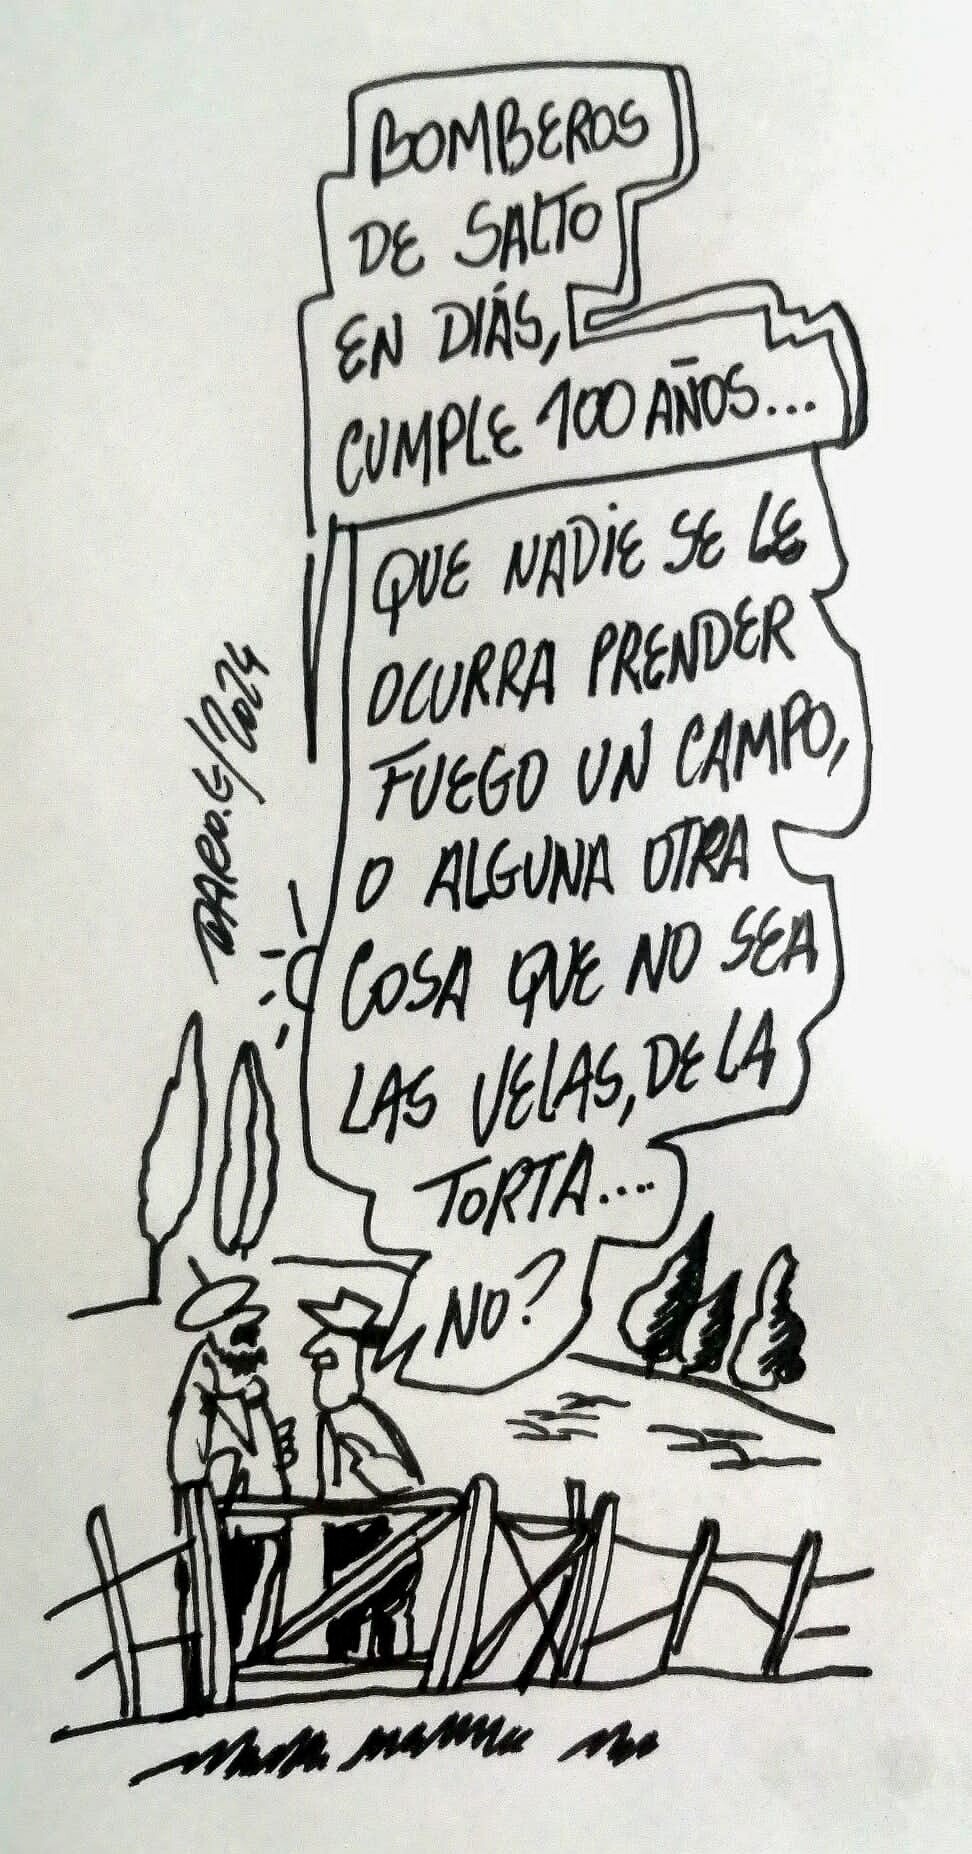 BOMBEROS
DE SALTO
EN DIÁS,
CUMPLE 100 AÑOS...
QUE NADIE SE LE
OCURRA PRENDER
FUEGO UN CAMPO,
O ALGUNA OTRA
COSA QUE NO SEA
LAS VELAS, DE LA
TORTA....
NO?
DARO.G/2024